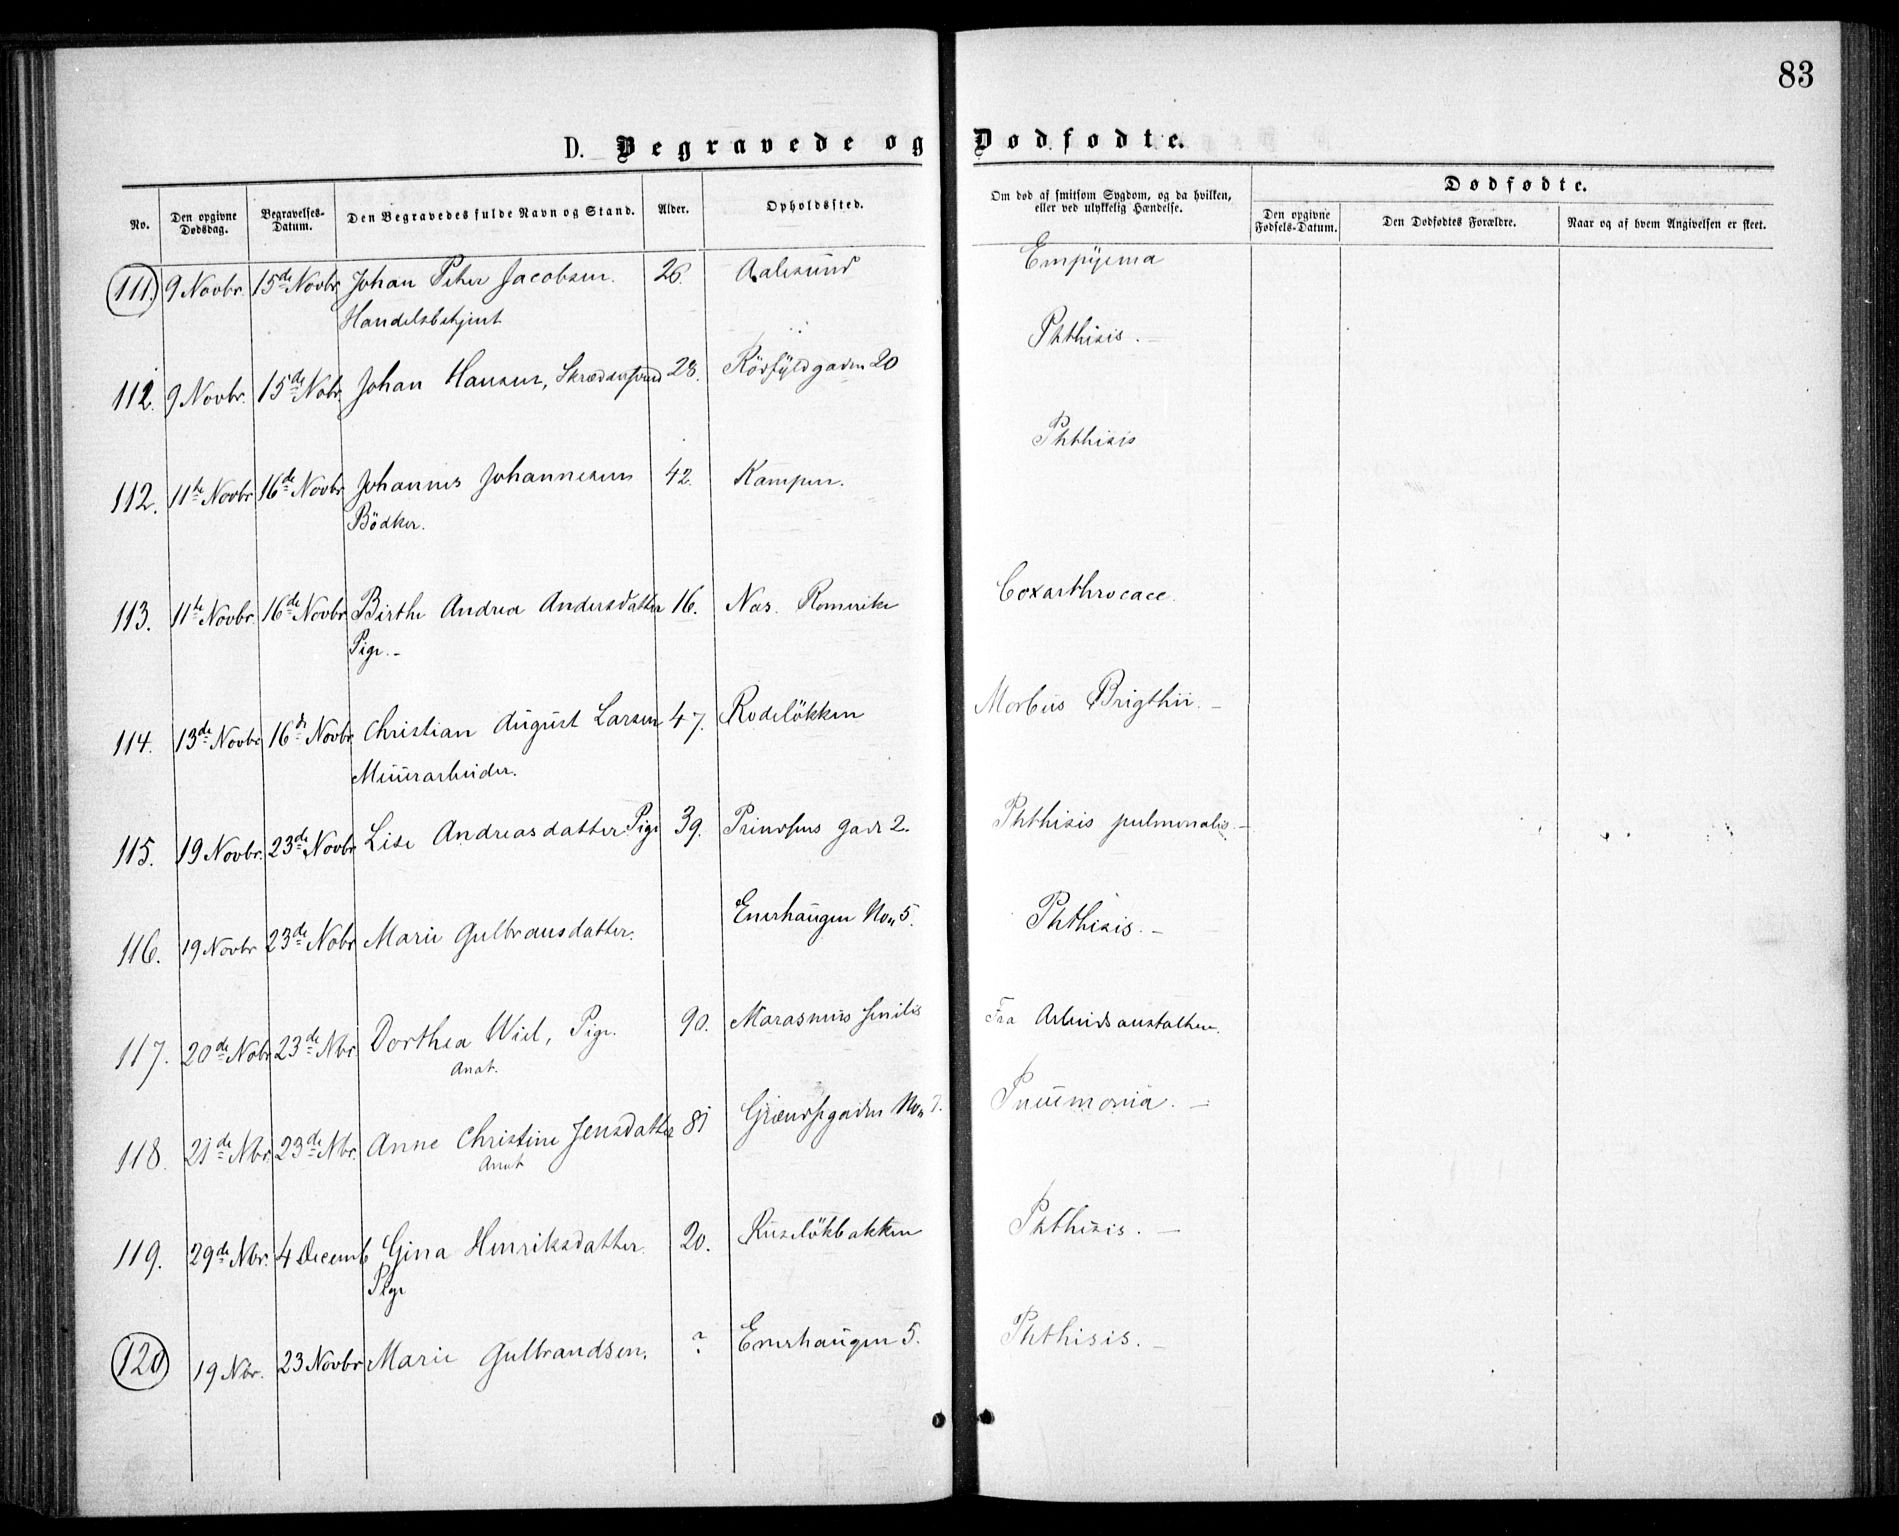 83
D. Begravede og Dødfødte.
No. Den opgivne Dødsdag. Begravelses-Datum. Den Begravedes fulde Navn og Stand. Alder. Opholdssted. Om død af smitsom Sygdom, og da hvilken, eller ved ulykkelig Hændelse. Dødfødte.
Den opgivne Fødsels-Datum. Den Dødfødtes Forældre. Naar og af hvem Angivelsen er skeet.
111. 9 Novbr. 15de Novbr Johan Peter Jacobsen. 26. Aalesund Empyema
Handelsbetjent
112. 9 Novbr. 15de Nobr. Johan Hansen, Skrædersvend 28. Rörfyldgaden 20 Phthisis.
112. 11te Novbr 16de Novbr Johannes Johannesen 42. Kampen. Phthisis
Bödker.
113. 11te Novbr. 16de Novbr. Birthe Andrea Andersdatter 16. Næs. Romerike Coxarthrocace.
Pige.-
114. 13de Novbr 16de Novbr Christian August Larsen 47. Rodelökken Morbus Brigthii. -
Muurarbeider.
115. 19 Novbr. 23de Novbr Lise Andreasdatter. Pige 39. Prindsens gade 2. Phthisis pulmonalis. -
116. 19 Novbr 23de Nobr Marie Gulbransdatter. Enerhaugen No. 5. Phthisis. -
117. 20de Nobr 23de Nbr. Dorthea Wiel, Pige. 90. Marasmus senilis Fra Arbeidsanstalten.
Anat.
118. 21de Nbr. 23de Nbr. Anne Christine Jensdatter 81 Grændsegaden No. 7. Pneumonia. -
Anat
119. 29de Nbr. 4 Decemb Gina Henriksdatter. 20. Ruselökbakken Phthisis. -
Pige
120 19 Nbr. 23 Novbr Marie Gulbrandsen. ? Enerhaugen 5. Phthisis. -